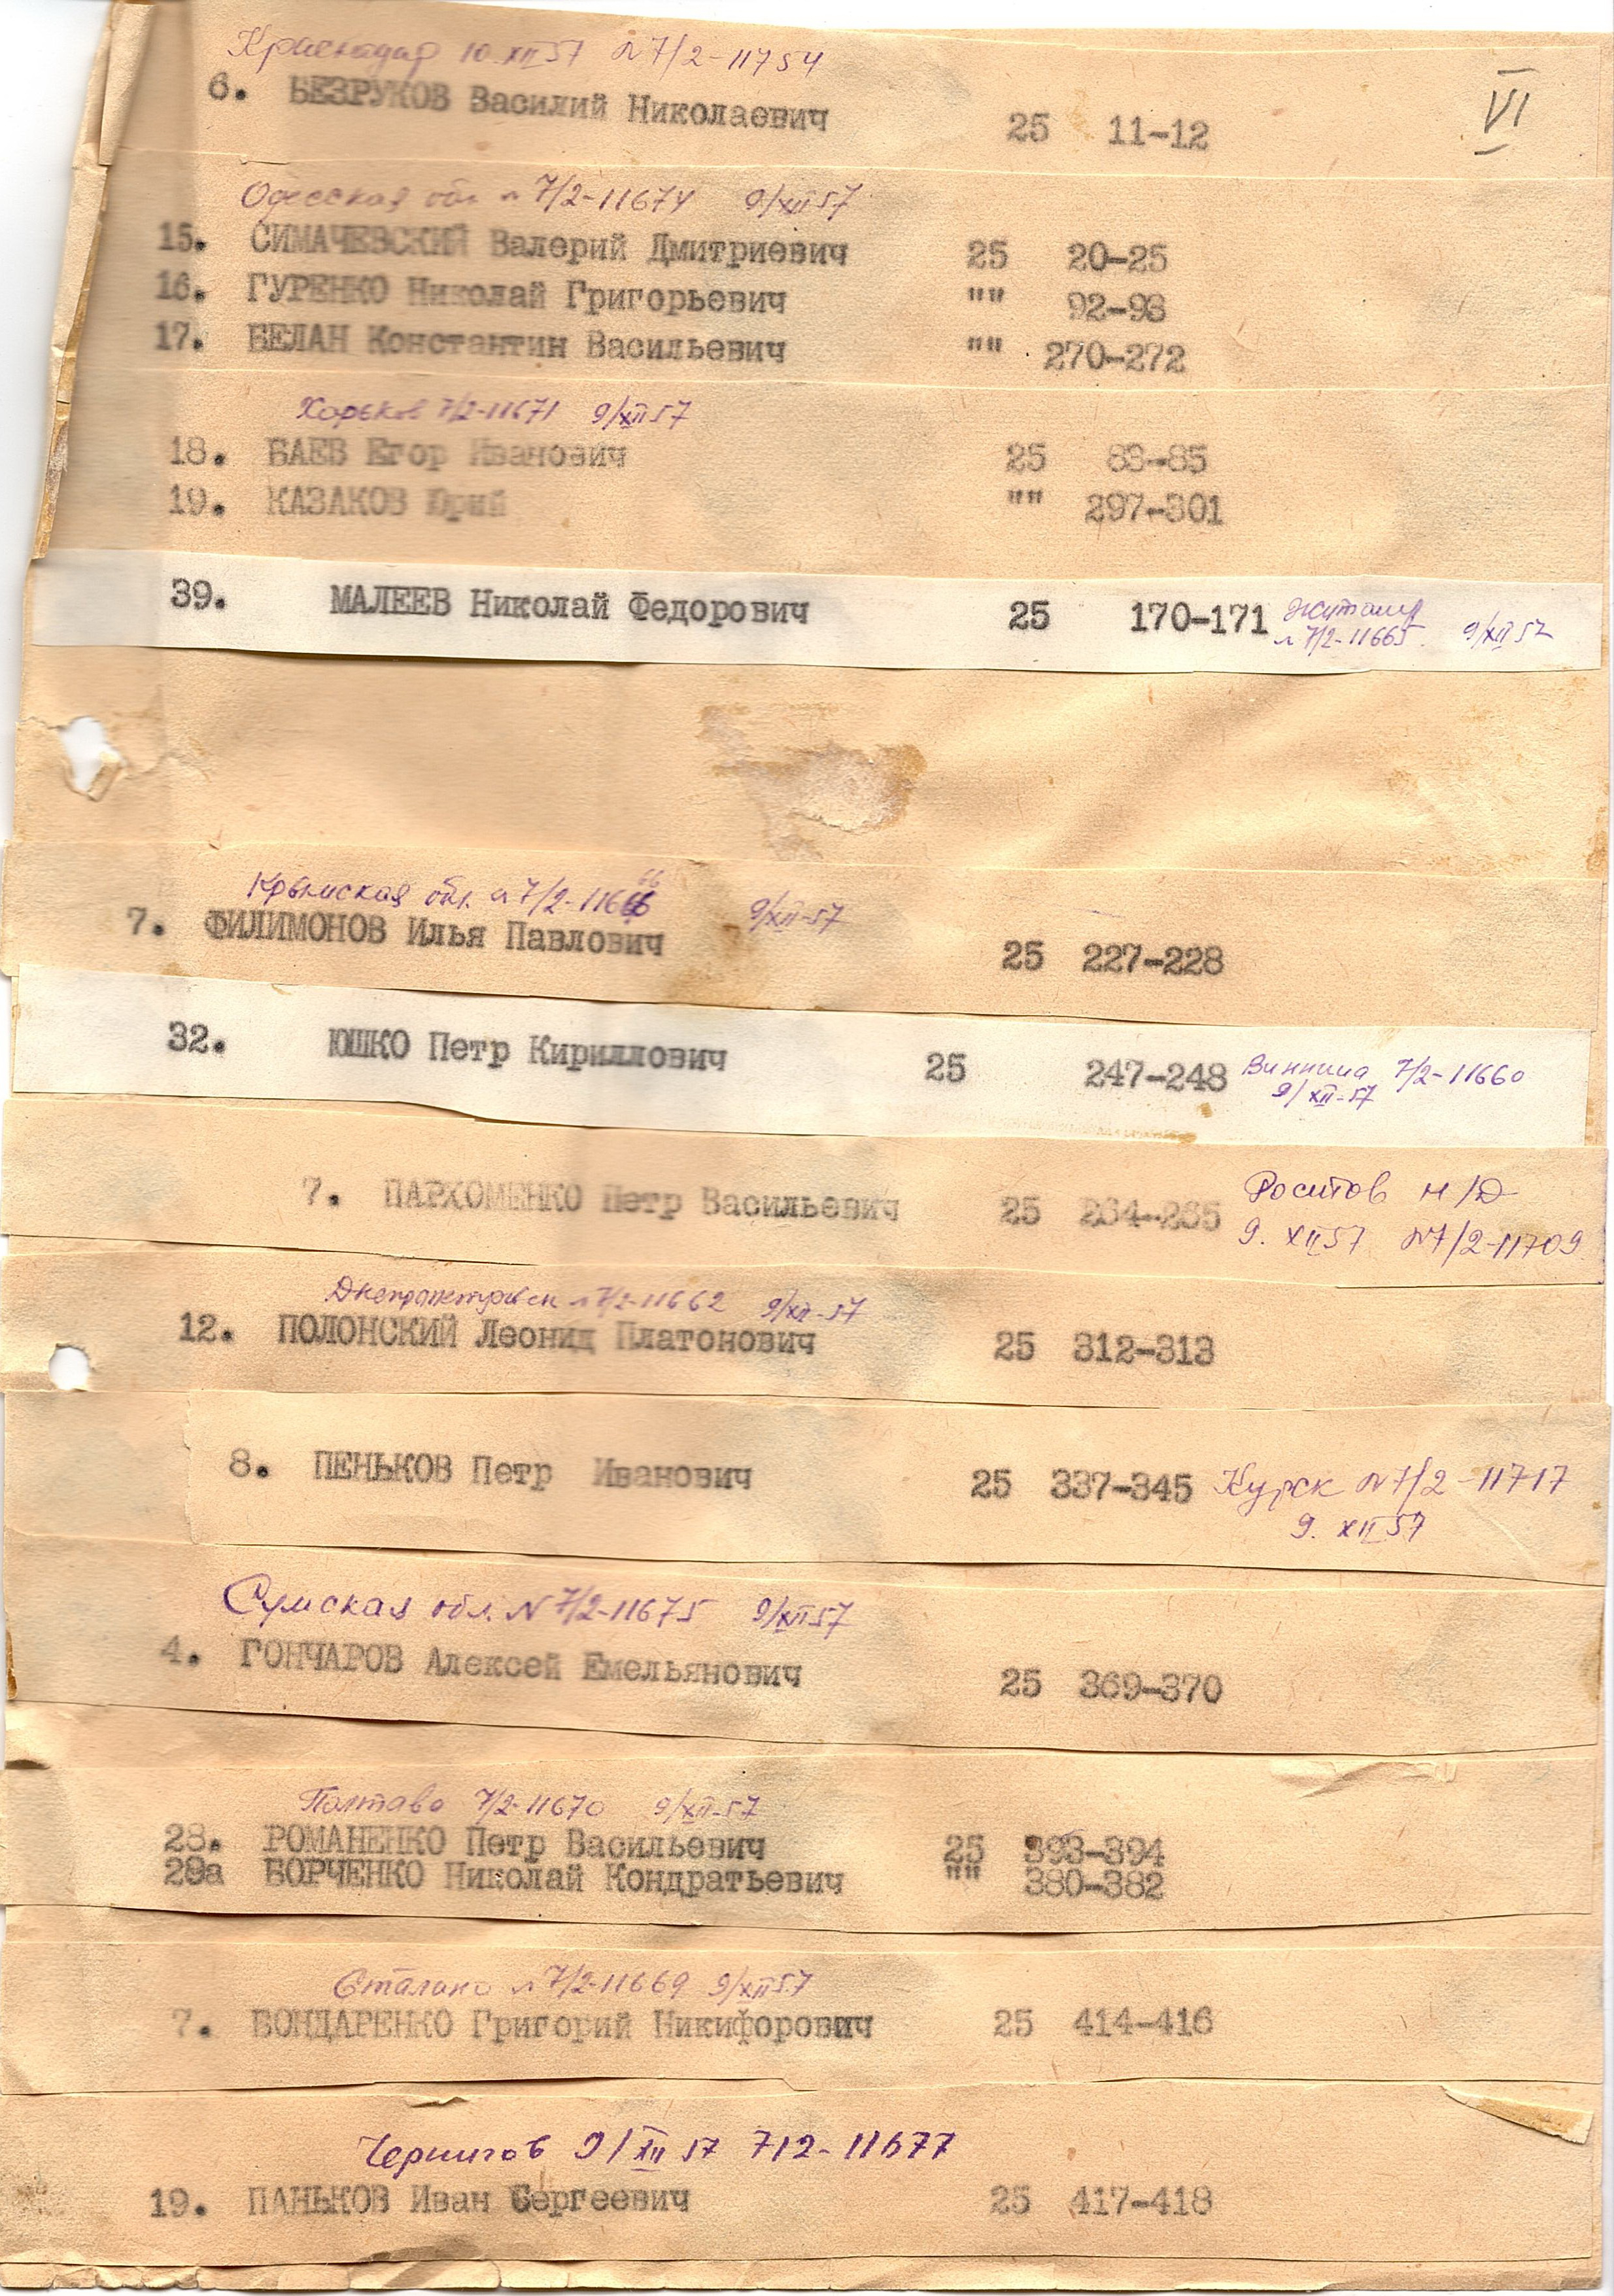 Краснодар 10.XII 57 N 7/2-11754
6. БЕЗРУКОВ Василий Николаевич 25 11-12 VI
Одесская обл. N 7/2-11674 9/XII 57
15. СИМАЧЕВСКИЙ Валерий Дмитриевич 25 20-25
16. ГУРЕНКО Николай Григорьевич "" 92-93
17. БЕЛАН Константин Васильевич "" 270-272
Харьков 7/2-11671 9/XII 57
18. БАЕВ Егор Иванович 25 83-85
19. КАЗАКОВ Юрий "" 297-301
39. МАЛЕЕВ Николай Федорович 25 170-171 Житомир
N 7/2-11665. 9/XII 57
Крымская обл. N 7/2-11666 9/XII-57
7. ФИЛИМОНОВ Илья Павлович 25 227-228
32. ЮШКО Петр Кириллович 25 247-248 Винница 7/2-11660
9/XII-57
7. ПАРХОМЕНКО Петр Васильевич 25 264-265 Ростов н/Д
9. XII 57 N7/2-11709
Днепропетровск N 7/2-11662 9/XII-57
12. ПОЛОНСКИЙ Леонид Платонович 25 312-313
8. ПЕНЬКОВ Петр Иванович 25 337-345 Курск N7/2-11717
9. XII 57
Сумская обл. N 7/2-11675 9/XII 57
4. ГОНЧАРОВ Алексей Емельянович 25 369-370
Полтава 7/2-11670 9/XII-57
28. РОМАНЕНКО Петр Васильевич 25 393-394
28а БОРЧЕНКО Николай Кондратьевич "" 380-382
Сталино N 7/2-11669 9/XII 57
7. БОНДАРЕНКО Григорий Никифорович 25 414-416
Чернигов 9/XII 57 7/2-11677
19. ПАНЬКОВ Иван Сергеевич 25 417-418